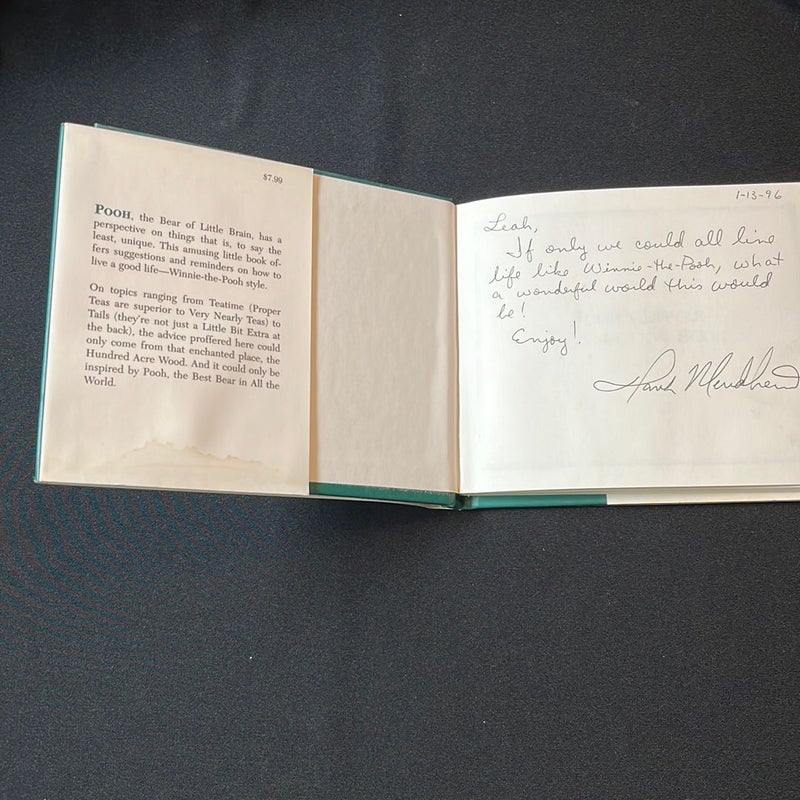 $7.99
POOH, the Bear of Little Brain, has a
perspective on things that is, to say the
least, unique. This amusing little book of-
fers suggestions and reminders on how to
live a good life—Winnie-the-Pooh style.
On topics ranging from Teatime (Proper
Teas are superior to Very Nearly Teas) to
Tails (they're not just a Little Bit Extra at
the back), the advice proffered here could
only come from that enchanted place, the
Hundred Acre Wood. And it could only be
inspired by Pooh, the Best Bear in All the
World.
1-13-96
Leah,
If only we could all live
life like Winnie-the-Pooh, what
a wonderful world this would
be!
Enjoy!